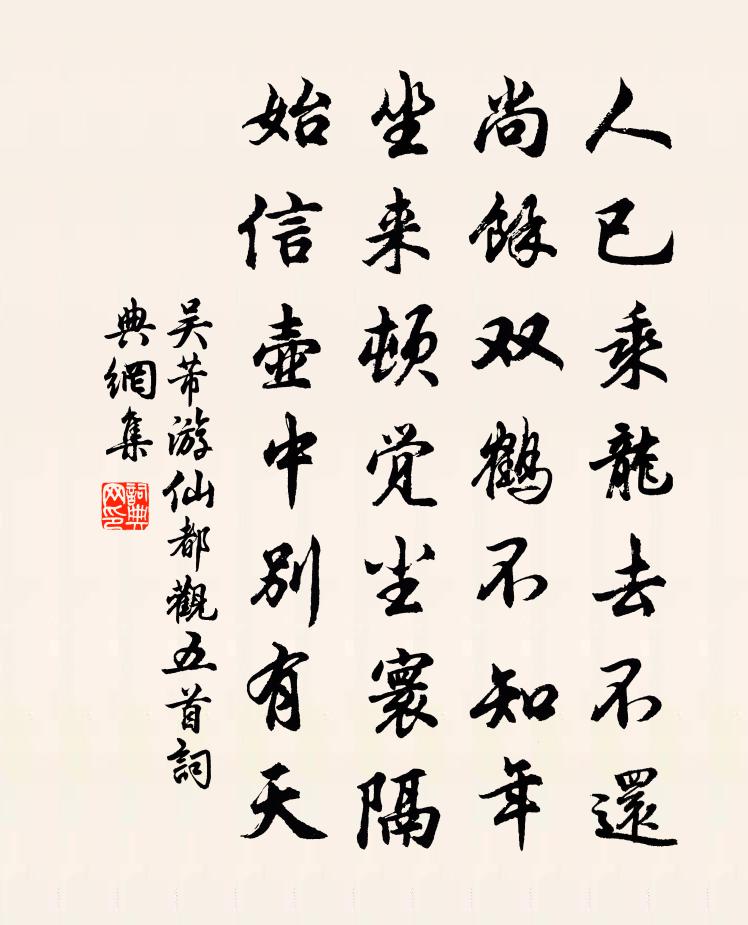 人已乘龍去不還
尚餘双鶴不知年
坐来顿觉尘寰隔
始信壺中別有天
吴芾游仙都觀五首詞
典網集
詞典网印